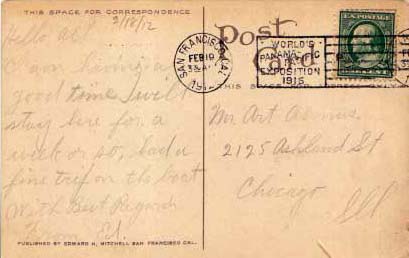 THIS SPACE FOR CORRESPONDENCE
2/18/12
Hello Al!
am having a
good time I will
stay here for a
week or so, had a
fine trip on the boat
With Best Regards
From Ed.
PUBLISHED BY EDWARD H. MITCHELL SAN FRANCISCO CAL.
Post
Card
SAN FRANCISCO, CAL.
FEB 19
WORLD'S
PANAMA-PACIFIC
EXPOSITION
1915
U.S. POSTAGE
THIS SPACE
Mr Art
2125 Ashland St
Chicago
Ill